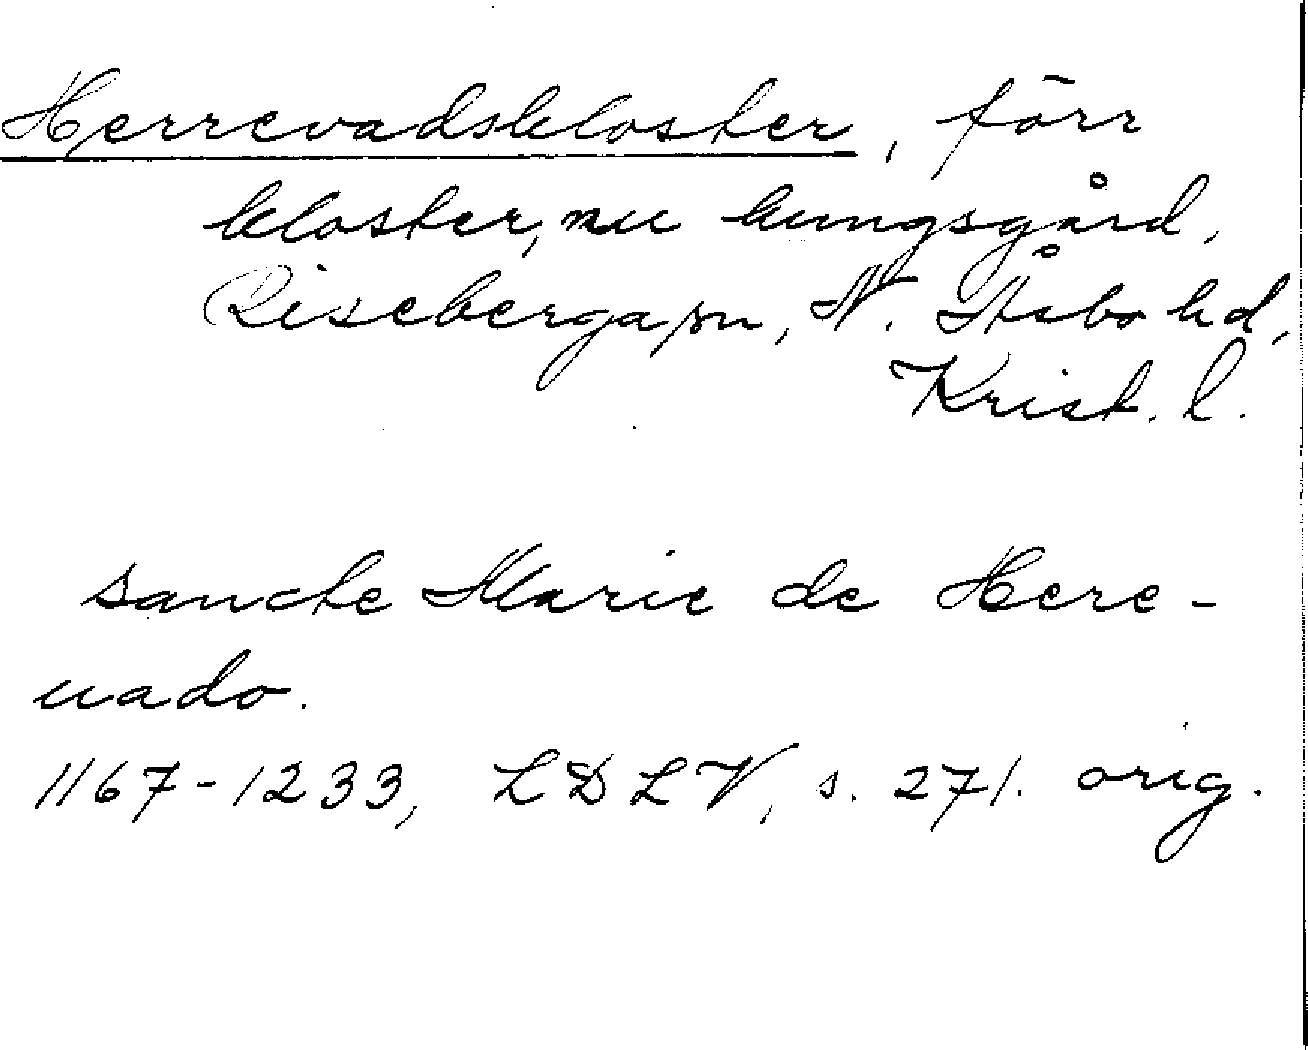 Herrevadskloster, förr
kloster, nu kungsgård,
Riseberga sn, N. Åsbo hd,
Krist. l.
sancte Marie de Here-
uado.
1167-1233, LDLV, s. 271. orig.